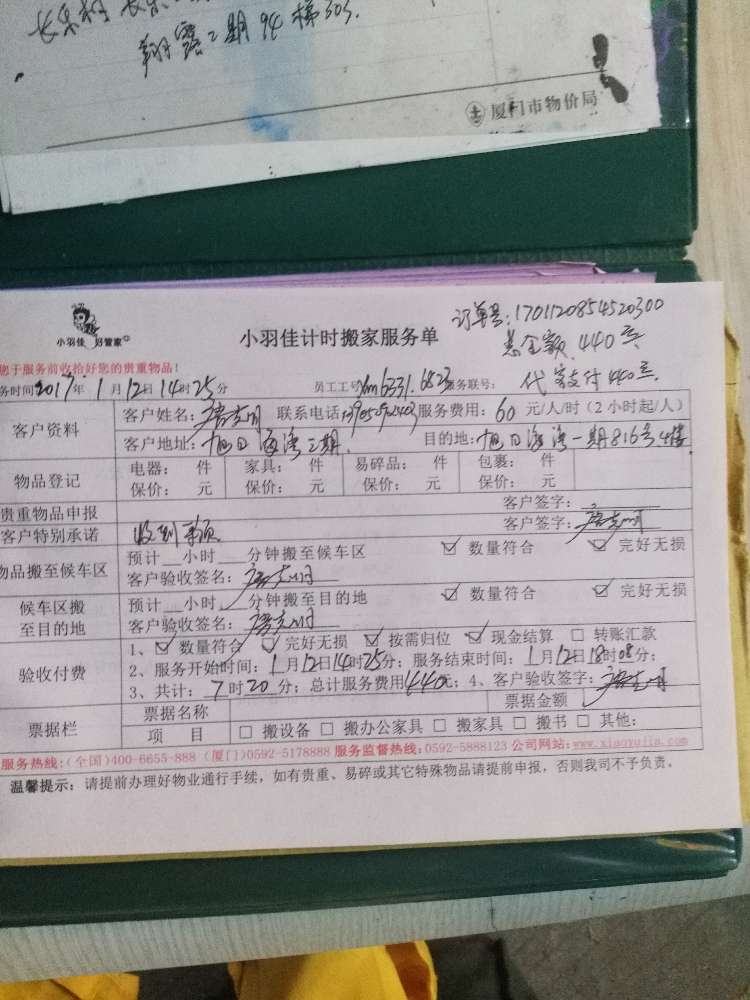 翔露二期94梯303.
厦门市物价局
小羽佳 好管家
小羽佳计时搬家服务单
订单号:1701120854520300
总金额 440元
代客支付440元.
您于服务前收拾好您的贵重物品!
务时间2017年1月12日14时25分 员工工号xm6331.6823服务联号:
客户资料
客户姓名: 联系电话 服务费用:60元/人/时(2小时起/人)
客户地址:旭日海湾三期. 目的地:旭日海湾一期816号4楼
物品登记
电器: 件 家具: 件 易碎品: 件 包裹: 件
保价: 元 保价: 元 保价: 元 保价: 元
贵重物品申报 客户签字:
客户特别承诺 客户签字:
物品搬至候车区
预计__小时__分钟搬至候车区 ☑ 数量符合 ☑ 完好无损
客户验收签名:
候车区搬至目的地
预计__小时__分钟搬至目的地 ☑ 数量符合 ☑ 完好无损
客户验收签名:
验收付费
1、☑ 数量符合 ☑ 完好无损 ☑ 按需归位 ☑ 现金结算 □ 转账汇款
2、服务开始时间:1月12日14时25分;服务结束时间:1月12日18时08分;
3、共计:7时20分;总计服务费用440元;4、客户验收签字:
票据栏
票据名称 票据金额
项 目 □ 搬设备 □ 搬办公家具 □ 搬家具 □ 搬书 □ 其他:
服务热线:(全国)400-6655-888 (厦门)0592-5178888 服务监督热线:0592-5888123 公司网站:www.xiaoyujia.com
温馨提示:请提前办理好物业通行手续,如有贵重、易碎或其它特殊物品请提前申报,否则我司不予负责。